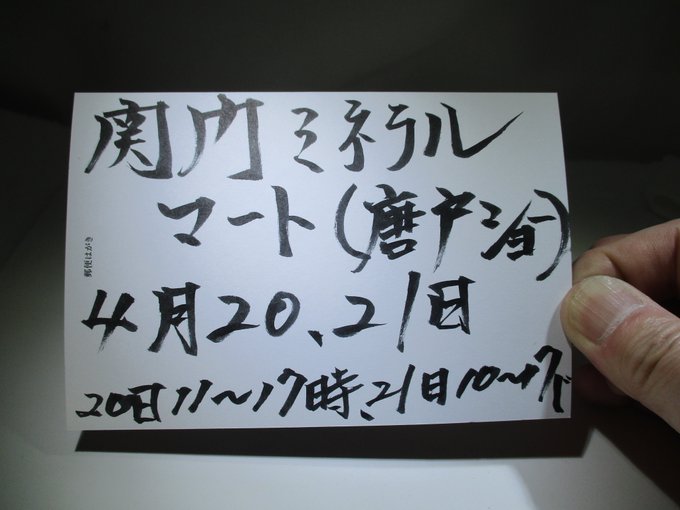 関門ミネラル
マート(唐戸ショー)
4月20、21日
20日11〜17時、21日10〜17
郵便はがき